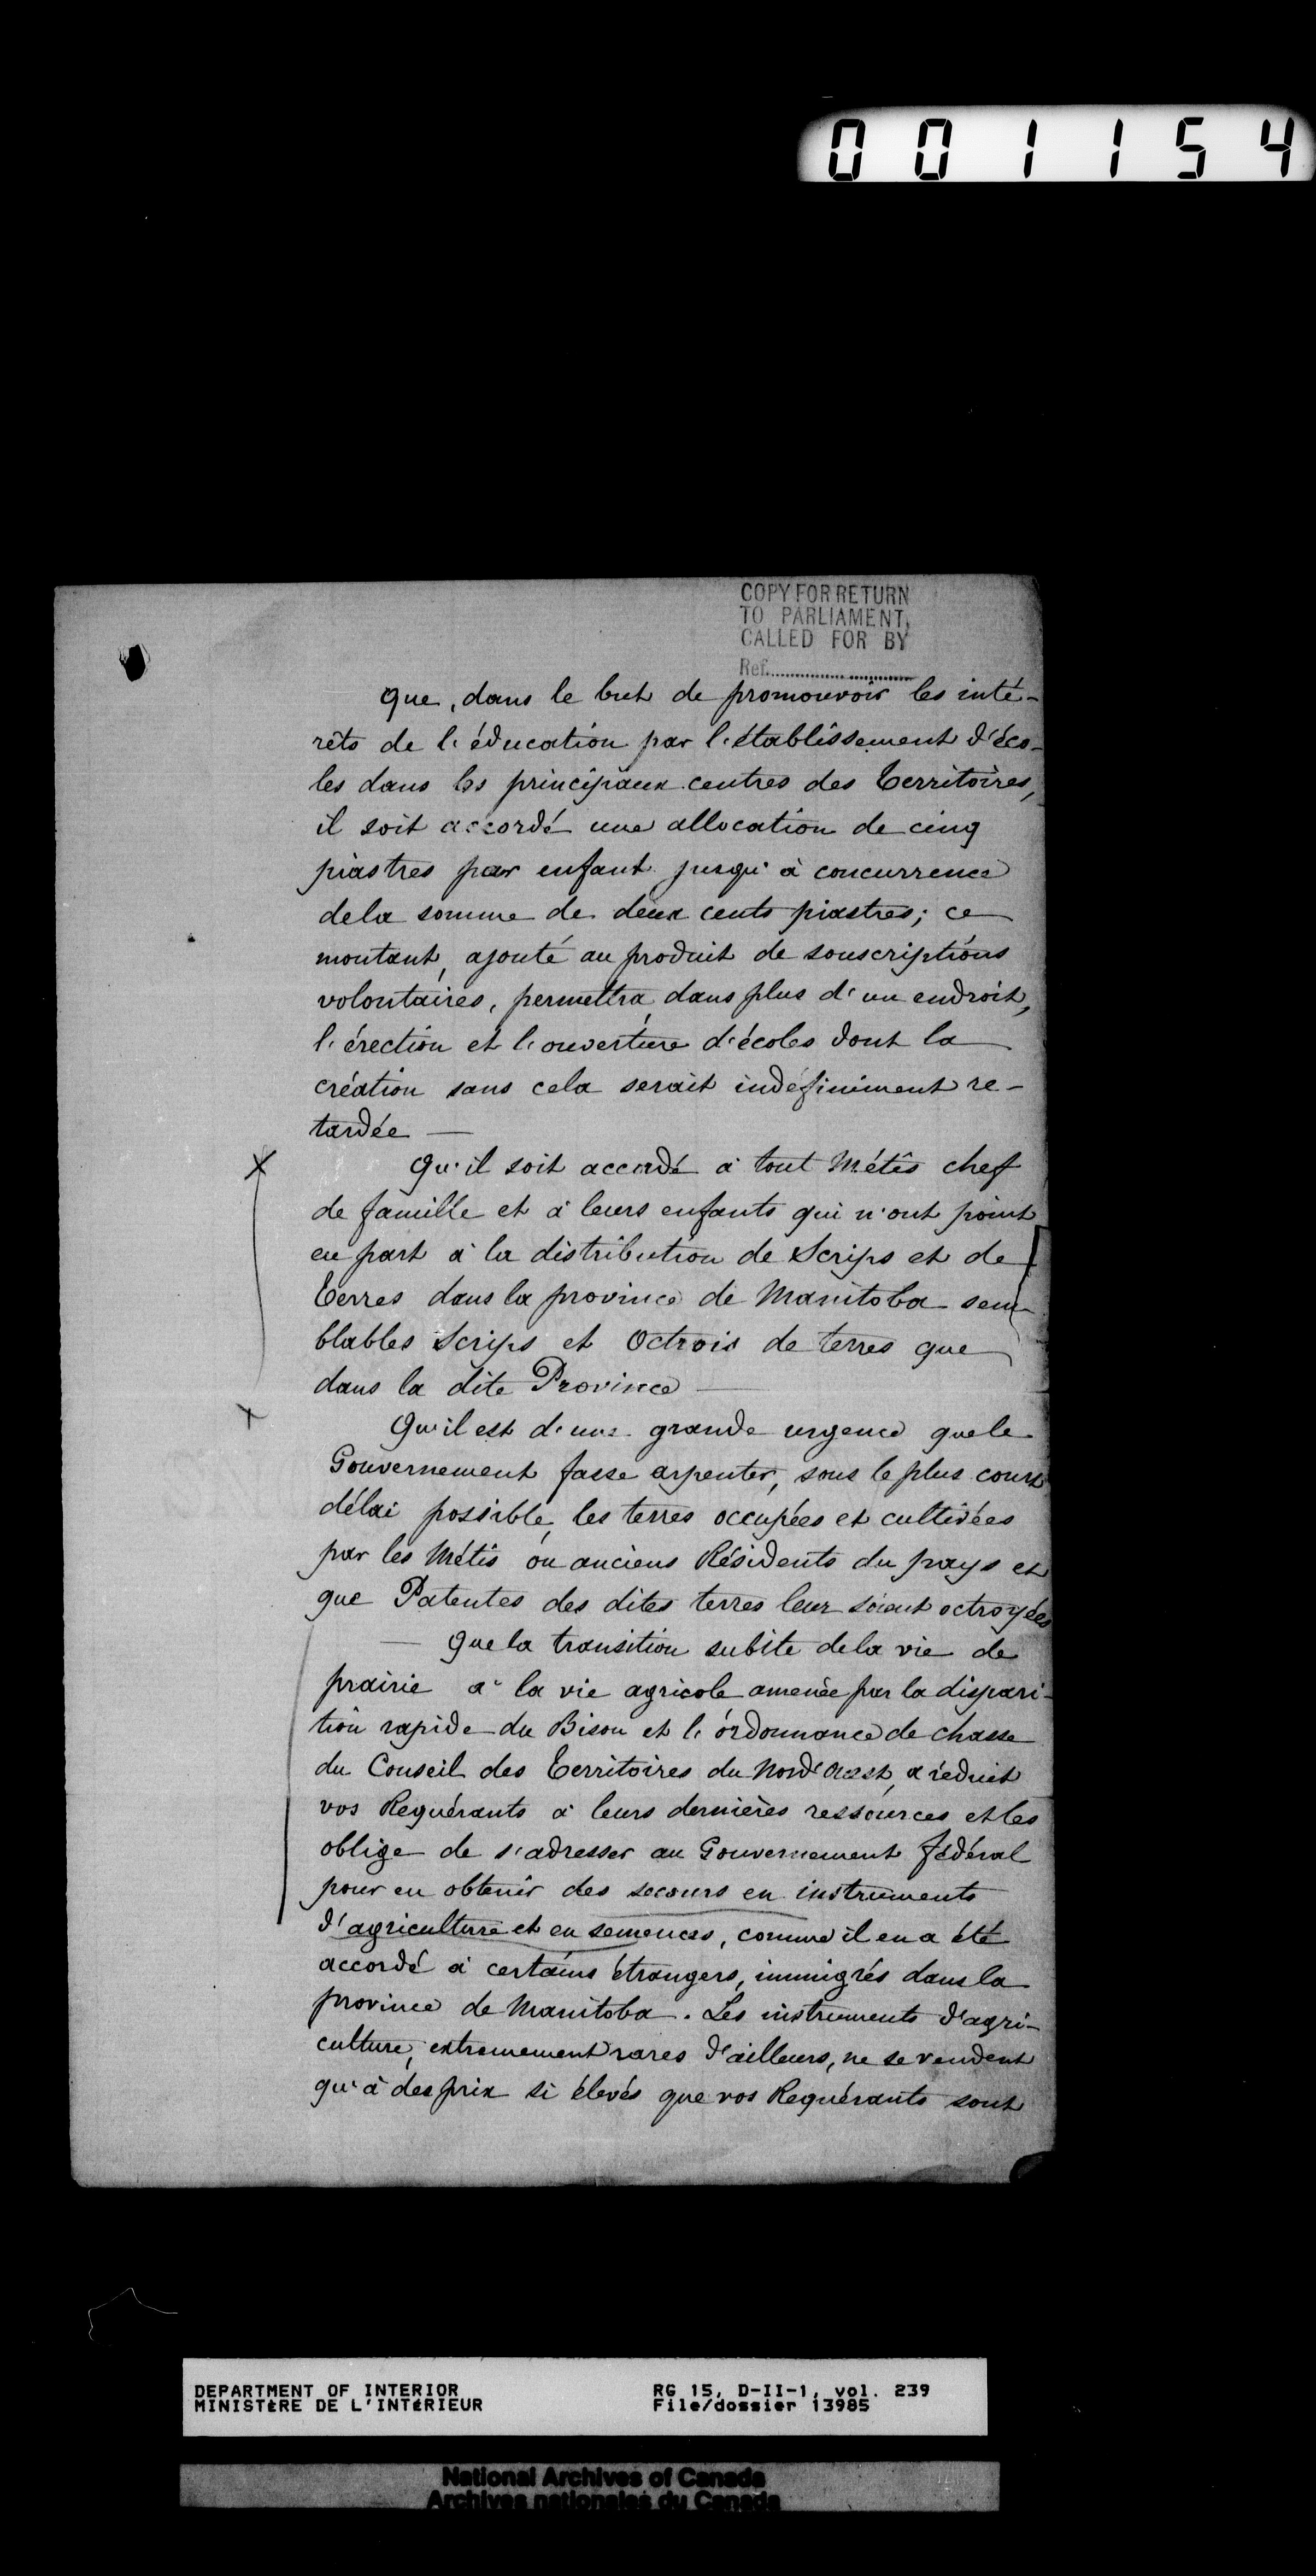 001154
COPY FOR RETURN
TO PARLIAMENT,
CALLED FOR BY
Ref.
Que, dans le but de promouvoir les inté-
rêts de l'éducation par l'établissement d'éco-
les dans les principaux centres des Territoires,
il soit accordé une allocation de cinq
piastres par enfant jusqu'à concurrence
de la somme de deux cents piastres; ce
montant, ajouté au produit de souscriptions
volontaires, permettra, dans plus d'un endroit,
l'érection et l'ouverture d'écoles dont la
création sans cela serait indéfiniment re-
tardée —
X
Qu'il soit accordé à tout Métis chef
de famille et à leurs enfants qui n'ont point
eu part à la distribution de Scrips et de
Terres dans la province de Manitoba sem-
blables Scrips et Octrois de terres que
dans la dite Province —
x
Qu'il est d'une grande urgence que le
Gouvernement fasse arpenter, sous le plus court
délai possible, les terres occupées et cultivées
par les Métis ou anciens Résidents du pays et
que Patentes des dites terres leur soient octroyées
— Que la transition subite de la vie de
prairie à la vie agricole amenée par la dispari-
tion rapide du Bison et l'ordonnance de chasse
du Conseil des Territoires du Nord Ouest, a réduit
vos Requérants à leurs dernières ressources et les
oblige de s'adresser au Gouvernement fédéral
pour en obtenir des secours en instruments
d'agriculture et en semences, comme il en a été
accordé à certains étrangers, immigrés dans la
province de Manitoba. Les instruments d'agri-
culture, extremement rares d'ailleurs, ne se vendent
qu'à des prix si élevés que vos Requérants sont
DEPARTMENT OF INTERIOR
MINISTÈRE DE L'INTÉRIEUR
RG 15, D-II-1, vol. 239
File/dossier 13985
National Archives of Canada
Archives nationales du Canada